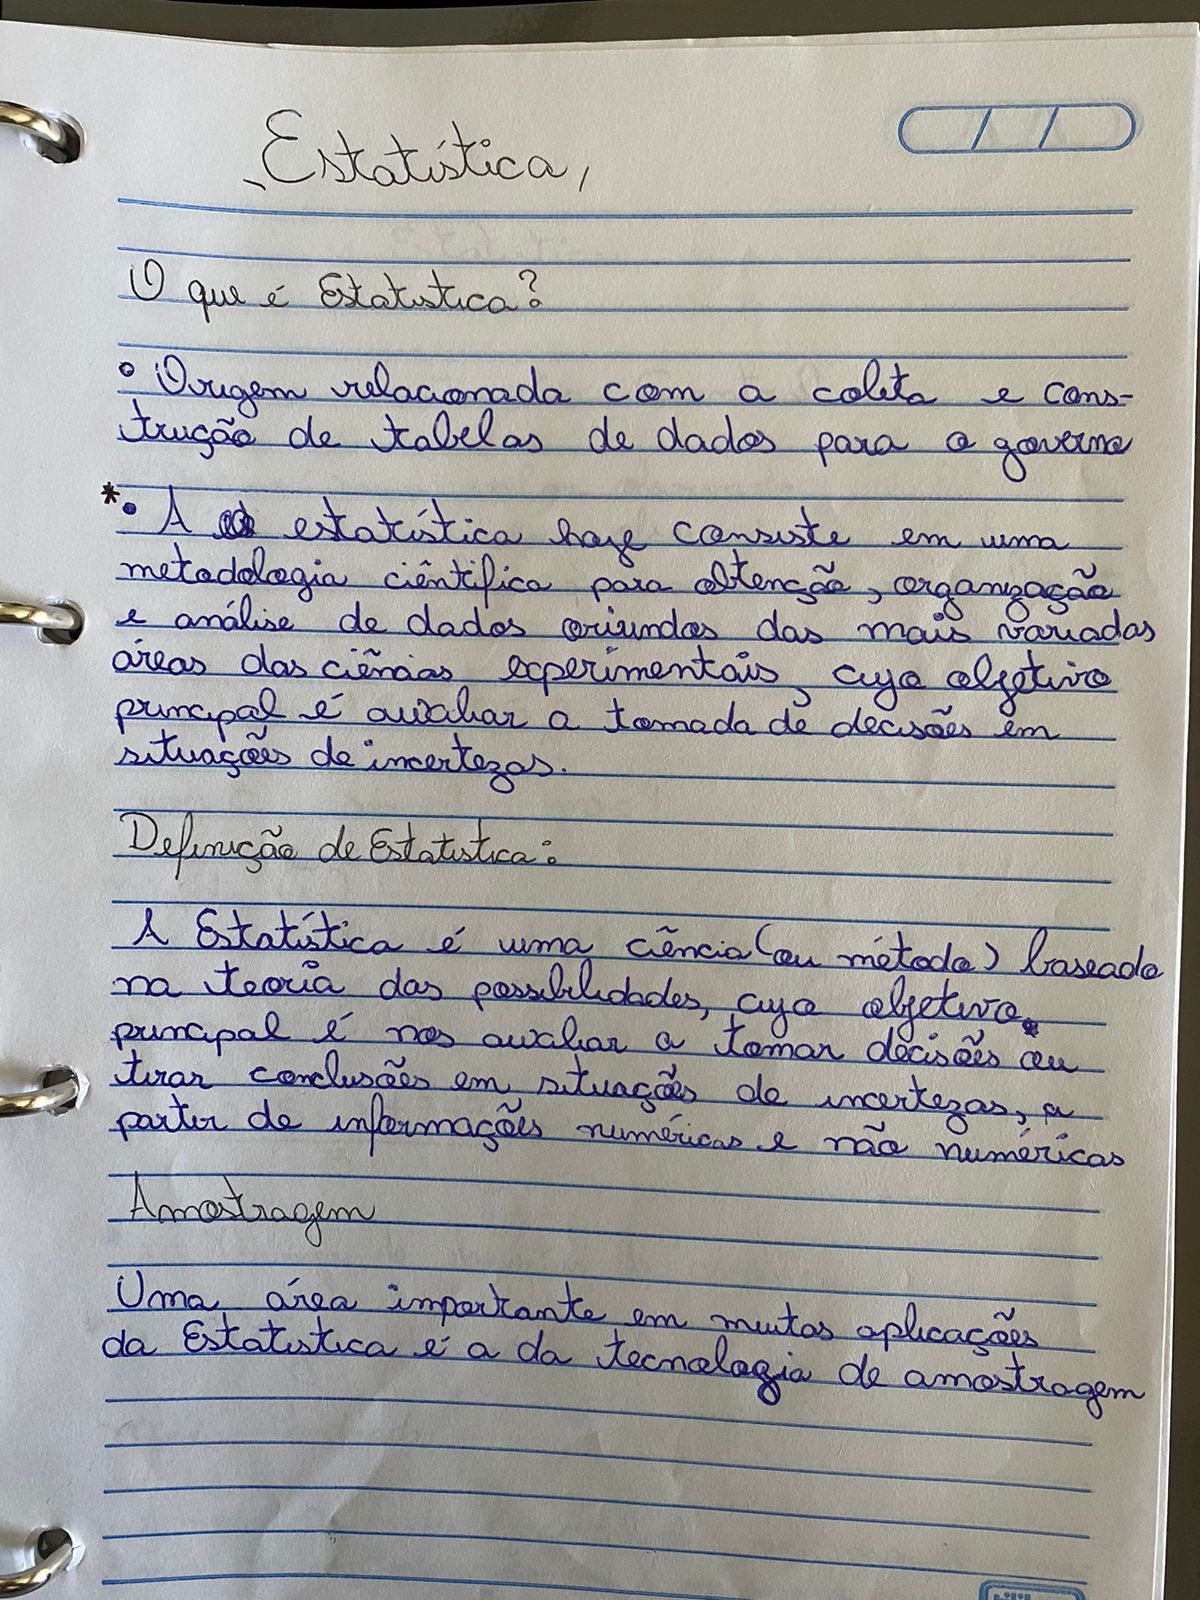 Estatística
O que é Estatística?
• Origem relacionada com a coleta e cons-
trução de tabelas de dados para o governo
*• A estatística hoje consiste em uma
metodologia ciêntífica para obtenção, organização
e análise de dados oriundos das mais variadas
áreas das ciências experimentais, cujo objetivo
principal é auxiliar a tomada de decisões em
situações de incertezas.
Definição de Estatística:
A Estatística é uma ciência (ou método) baseada
na teoria das possibilidades, cujo objetivo
principal é nos auxiliar a tomar decisões ou
tirar conclusões em situações de incertezas, a
partir de informações numéricas e não numéricas
Amostragem
Uma área importante em muitas aplicações
da Estatística é a da tecnologia de amostragem